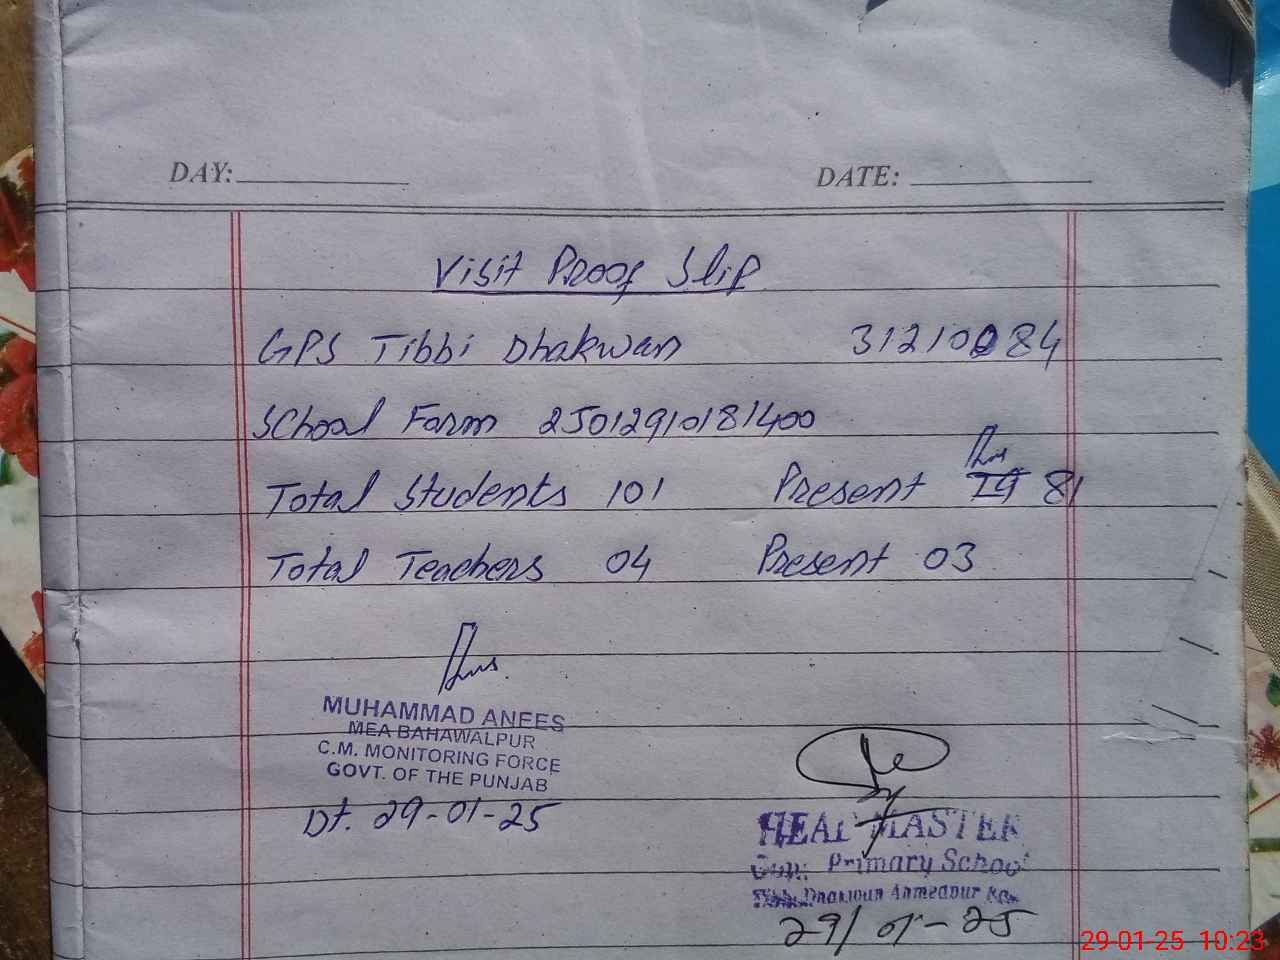 DAY: DATE:
Visit Proof Slip
GPS Tibbi Dhakwan 31210084
School Form 25012910181400
Total Students 101 Present 19 81
Total Teachers 04 Present 03
MUHAMMAD ANEES
MEA BAHAWALPUR
C.M. MONITORING FORCE
GOVT. OF THE PUNJAB
Dt. 29-01-25
HEAD MASTER
Govt: Primary School
Tibbi Dhakwan Ahmedpur
29/01-25
29-01-25 10:23